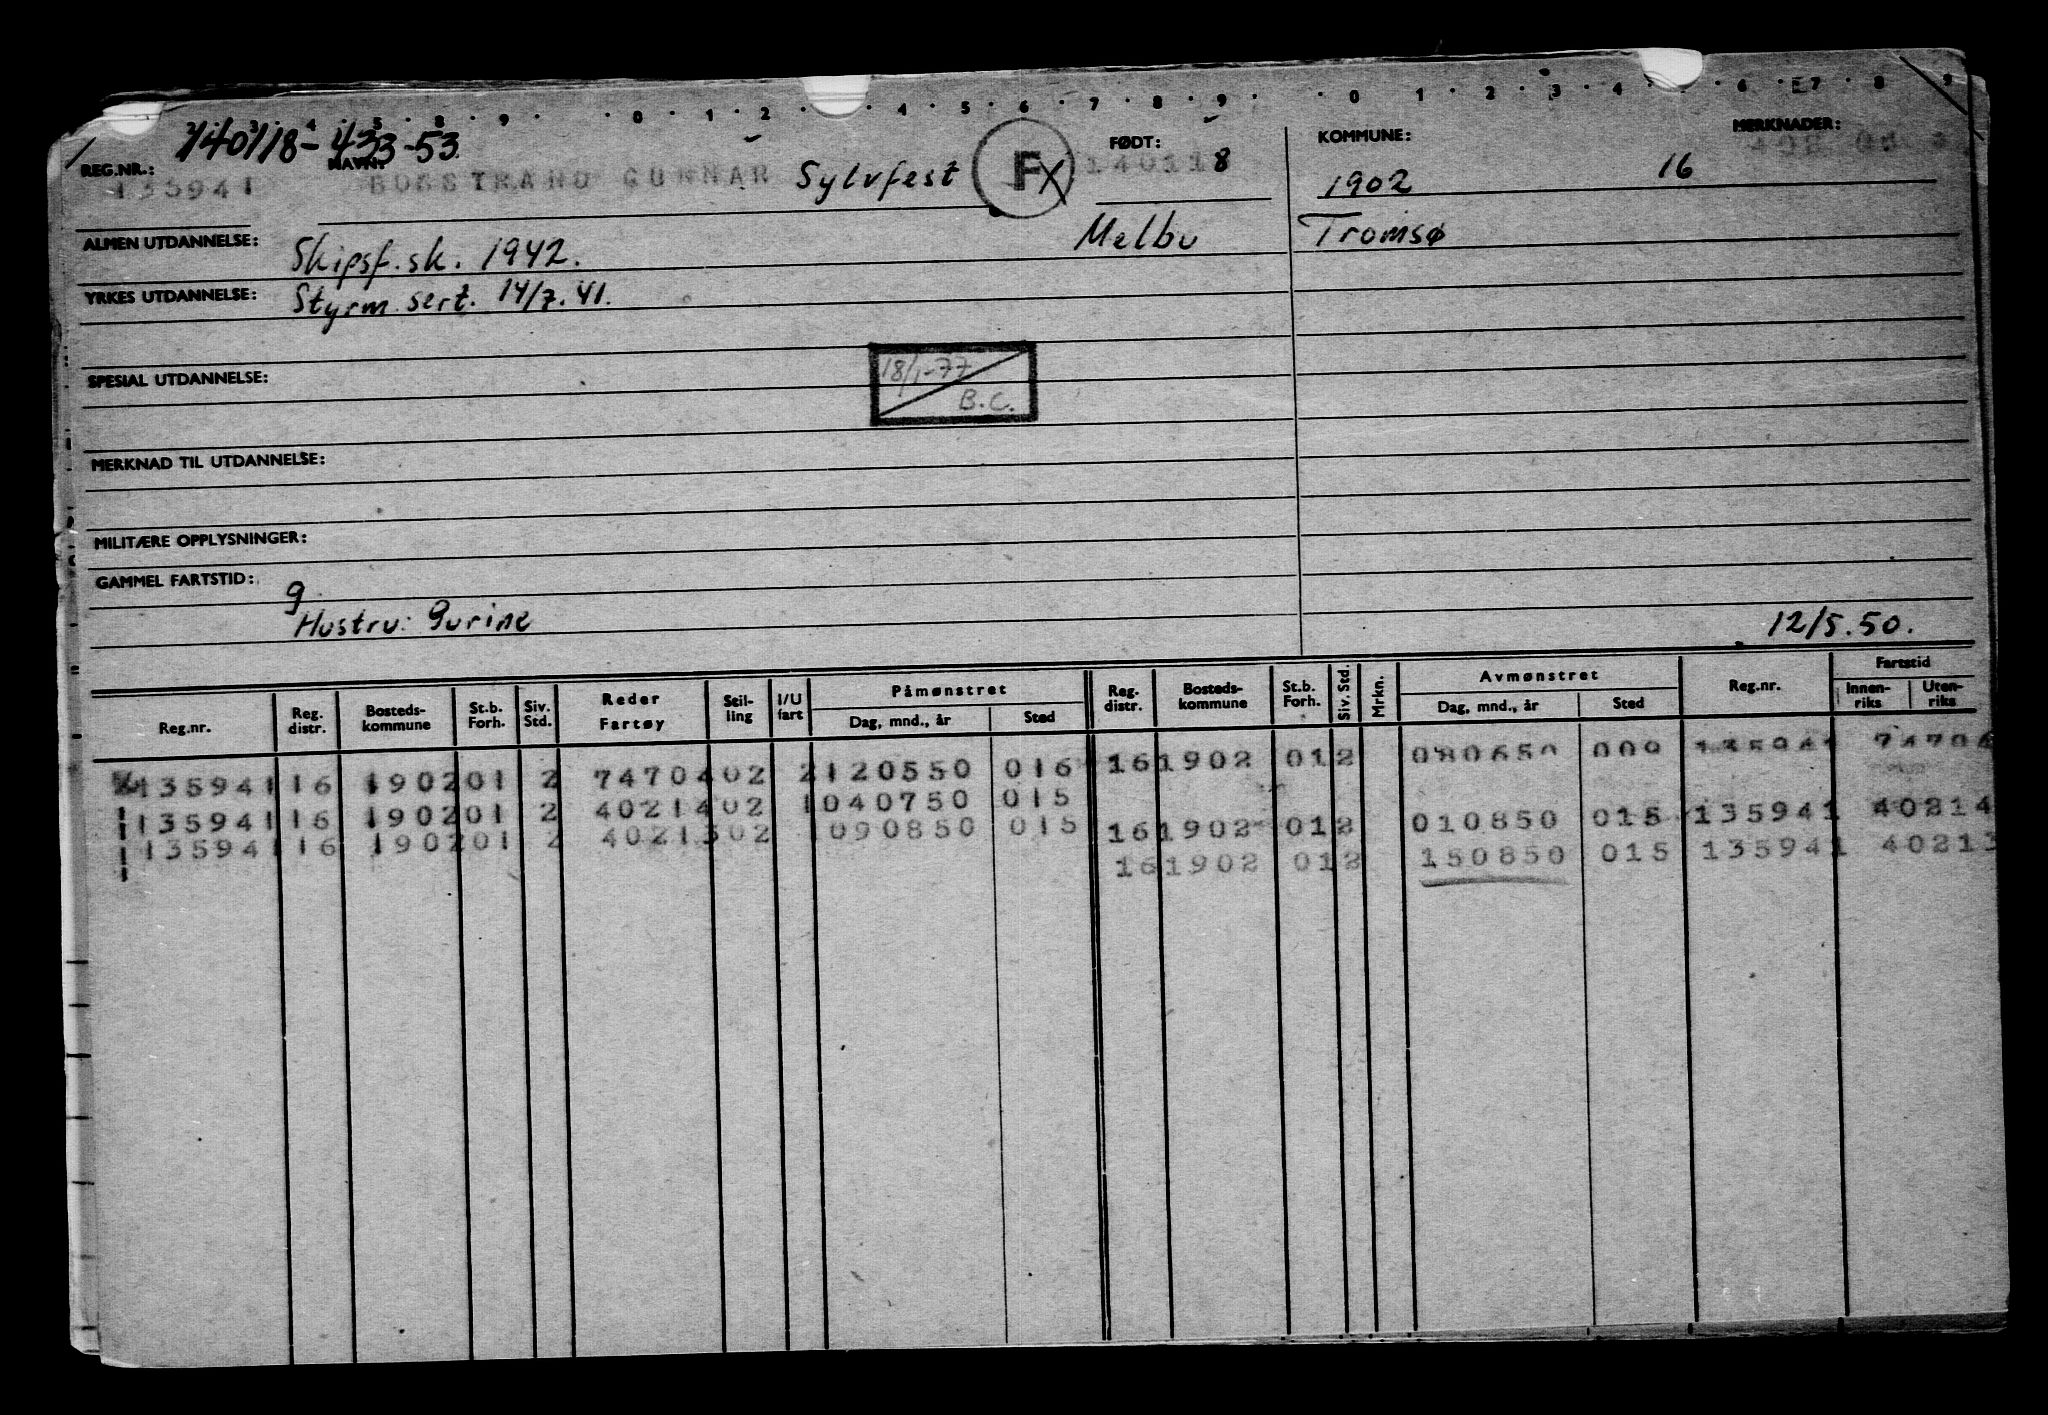 0 1 2 4 5 6 7 8 9 0 1 2 3 4 6 7 8 9
140118-43353
REG.NR.: NAVN: FØDT: KOMMUNE: MERKNADER:
135941 GUNNAR Sylvfest FX 140118 1902 16
ALMEN UTDANNELSE: Skipsf.sk. 1942. Melbu Tromsø
YRKES UTDANNELSE: Styrm.sert. 14/7.41.
SPESIAL UTDANNELSE:
18/1-77
B.C.
MERKNAD TIL UTDANNELSE:
MILITÆRE OPPLYSNINGER:
GAMMEL FARTSTID: g
Hustru: Gurine 12/5.50.
Reg.nr. Reg. distr. Bosteds-kommune St.b. Forh. Siv. Std. Reder Fartøy Stil-ling I/U fart Påmønstret Dag, mnd., år Sted Reg. distr. Bosteds-kommune St.b. Forh. Siv. Std. Mrkn. Avmønstret Dag, mnd., år Sted Reg.nr. Fartstid Innen-riks Uten-riks
135941 16 1902 01 2 74704 02 2 120550 016 16 1902 01 2 080650 009 135941 74704
135941 16 1902 01 2 40214 02 1 040750 015 16 1902 01 2 010850 015 135941 40214
135941 16 1902 01 2 40213 02 1 090850 015 16 1902 01 2 150850 015 135941 40213